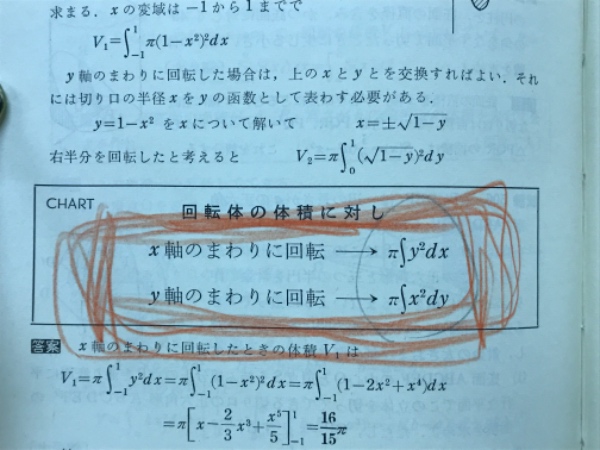 求まる．xの変域は−1から1までで
V₁=∫₋₁¹π(1−x²)²dx
y軸のまわりに回転した場合は，上のxとyとを交換すればよい．それ
には切り口の半径xをyの函数として表わす必要がある．
y=1−x² をxについて解いて x=±√(1−y)
右半分を回転したと考えると V₂=π∫₀¹(√(1−y))²dy
CHART
回転体の体積に対し
x軸のまわりに回転 → π∫y²dx
y軸のまわりに回転 → π∫x²dy
答案 x軸のまわりに回転したときの体積V₁は
V₁=π∫₋₁¹y²dx=π∫₋₁¹(1−x²)²dx=π∫₋₁¹(1−2x²+x⁴)dx
=π[x−2/3x³+x⁵/5]₋₁¹=16/15π